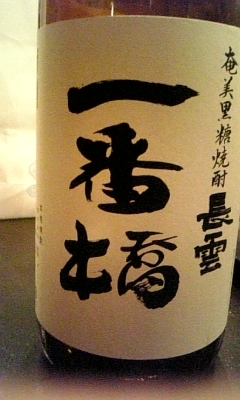 奄美黒糖焼酎
長雲
一番橋